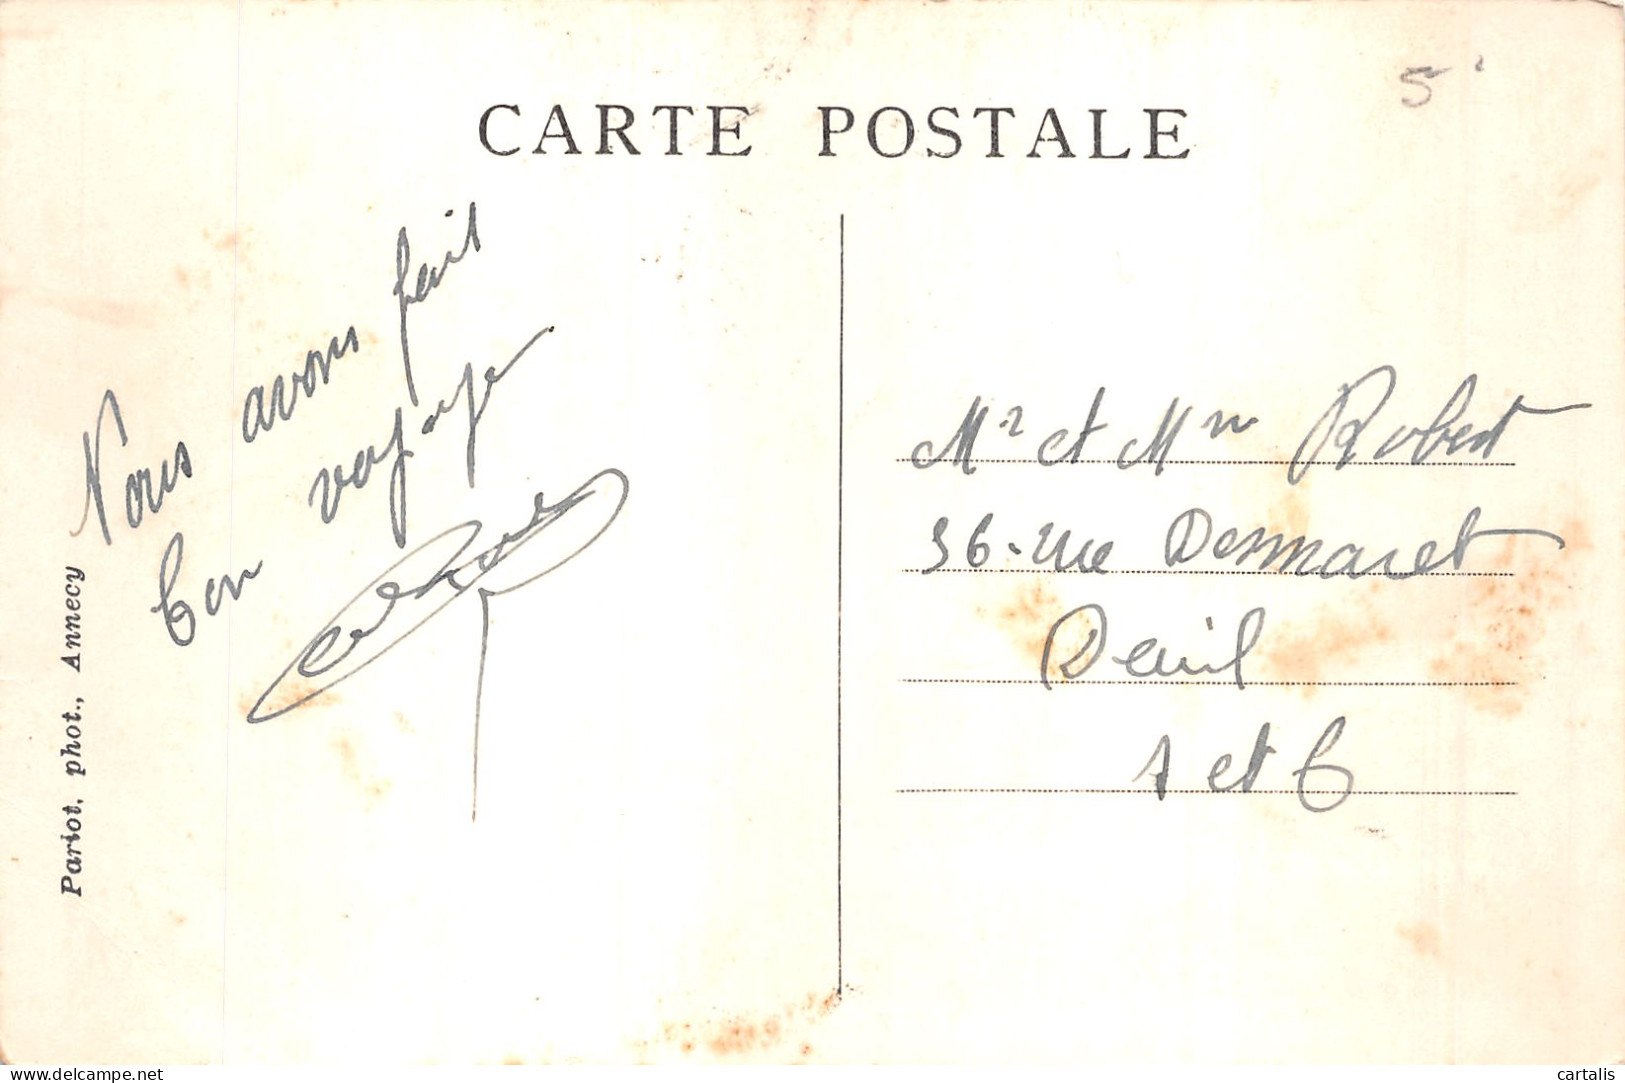 CARTE POSTALE
5
Nous avons fait
bon voyage
Pariot, phot., Annecy
Mr et Mme Robert
36 - rue Desmaret
Deuil
S et O
delcampe.net
cartalis